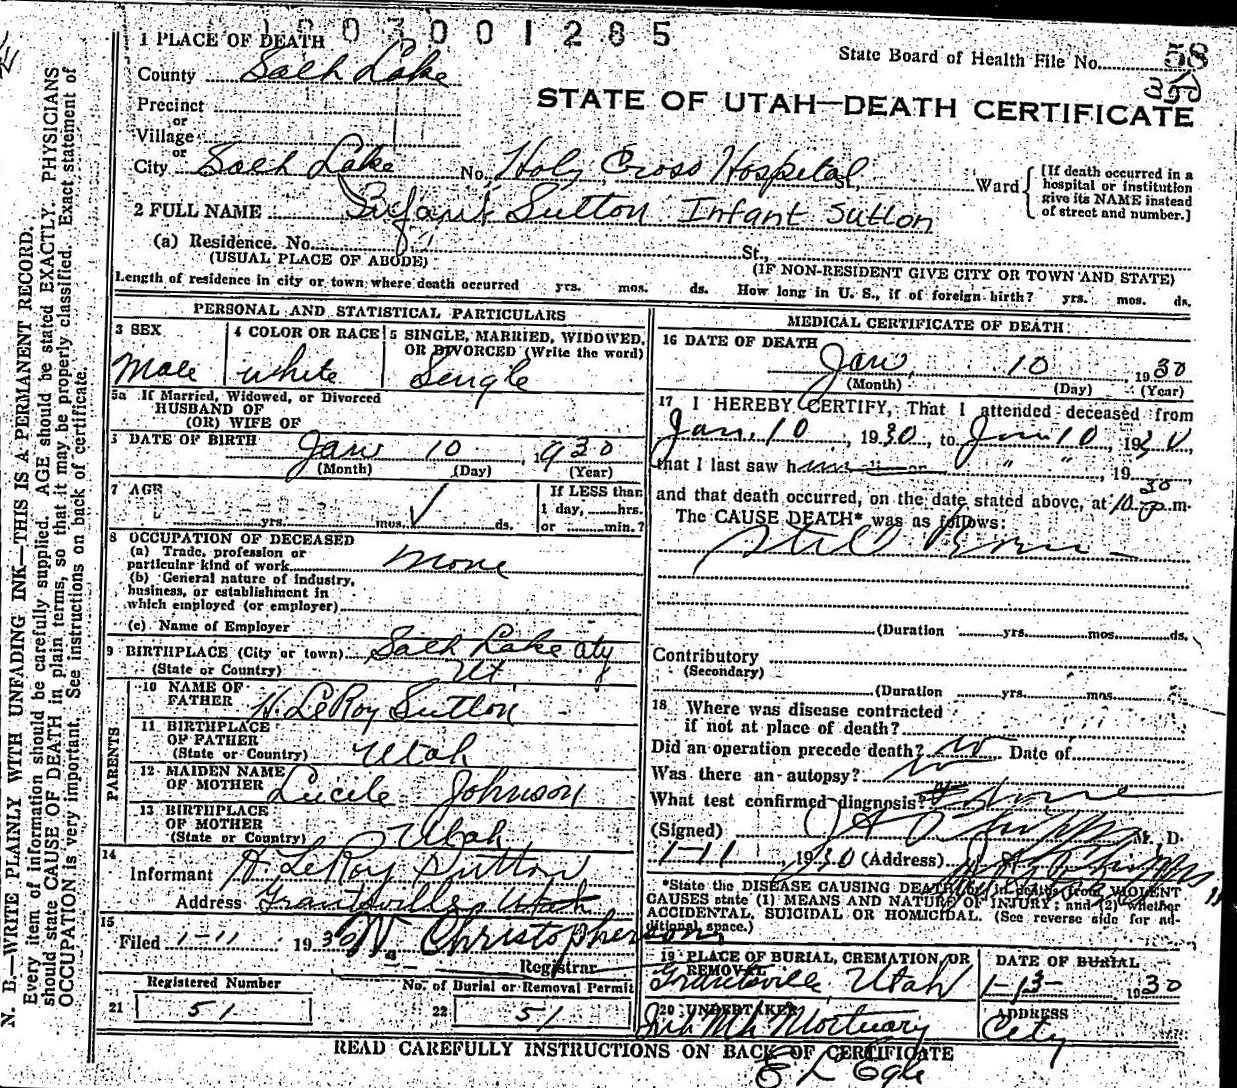 1 0 0 3 0 0 1 2 8 5
State Board of Health File No. 58
1 PLACE OF DEATH
County Salt Lake
STATE OF UTAH—DEATH CERTIFICATE
Precinct
or
Village
or
City Salt Lake No. Holy Cross Hospital St., Ward
[If death occurred in a hospital or institution give its NAME instead of street and number.]
2 FULL NAME Infant Sutton Infant Sutton
(a) Residence. No. St.,
(USUAL PLACE OF ABODE) (IF NON-RESIDENT GIVE CITY OR TOWN AND STATE)
Length of residence in city or town where death occurred yrs. mos. ds. How long in U. S., if of foreign birth? yrs. mos. ds.
PERSONAL AND STATISTICAL PARTICULARS
3 SEX Male
4 COLOR OR RACE white
5 SINGLE, MARRIED, WIDOWED, OR DIVORCED (Write the word) Single
5a If Married, Widowed, or Divorced
HUSBAND OF
(OR) WIFE OF
DATE OF BIRTH Jan 10 1930
(Month) (Day) (Year)
7 AGE yrs. mos. ds.
If LESS than
1 day, hrs.
or min.?
8 OCCUPATION OF DECEASED
(a) Trade, profession or
particular kind of work none
(b) General nature of industry,
business, or establishment in
which employed (or employer)
(c) Name of Employer
9 BIRTHPLACE (City or town) Salt Lake City
(State or Country) Ut
PARENTS
10 NAME OF FATHER H. LeRoy Sutton
11 BIRTHPLACE OF FATHER (State or Country) Utah
12 MAIDEN NAME OF MOTHER Lucile Johnson
13 BIRTHPLACE OF MOTHER (State or Country) Utah
14 Informant H LeRoy Sutton
Address Grantsville Utah
15 Filed 1-11 1930 Christopherson
Registrar
Registered Number
21 51
No. of Burial or Removal Permit
22 51
MEDICAL CERTIFICATE OF DEATH
16 DATE OF DEATH
Jan. 10 1930
(Month) (Day) (Year)
17 I HEREBY CERTIFY, That I attended deceased from
Jan. 10, 1930, to Jan 10, 1930,
that I last saw h " ", 19
and that death occurred, on the date stated above, at 10 30 p m.
The CAUSE DEATH* was as follows:
Still Born
(Duration yrs. mos. ds.
Contributory
(Secondary)
(Duration yrs. mos.
18 Where was disease contracted
if not at place of death?
Did an operation precede death? no Date of
Was there an autopsy? no
What test confirmed diagnosis?
(Signed) M. D.
1-11, 1930 (Address)
*State the DISEASE CAUSING DEATH, or in deaths from VIOLENT
CAUSES state (1) MEANS AND NATURE OF INJURY; and (2) whether
ACCIDENTAL, SUICIDAL OR HOMICIDAL. (See reverse side for ad-
ditional space.)
19 PLACE OF BURIAL, CREMATION, OR REMOVAL
Grantsville, Utah
DATE OF BURIAL
1-13- 1930
20 UNDERTAKER
Mortuary
ADDRESS
City
READ CAREFULLY INSTRUCTIONS ON BACK OF CERTIFICATE
E L Egle
N. B.—WRITE PLAINLY WITH UNFADING INK—THIS IS A PERMANENT RECORD.
Every item of information should be carefully supplied. AGE should be stated EXACTLY. PHYSICIANS
should state CAUSE OF DEATH in plain terms, so that it may be properly classified. Exact statement of
OCCUPATION is very important. See instructions on back of certificate.